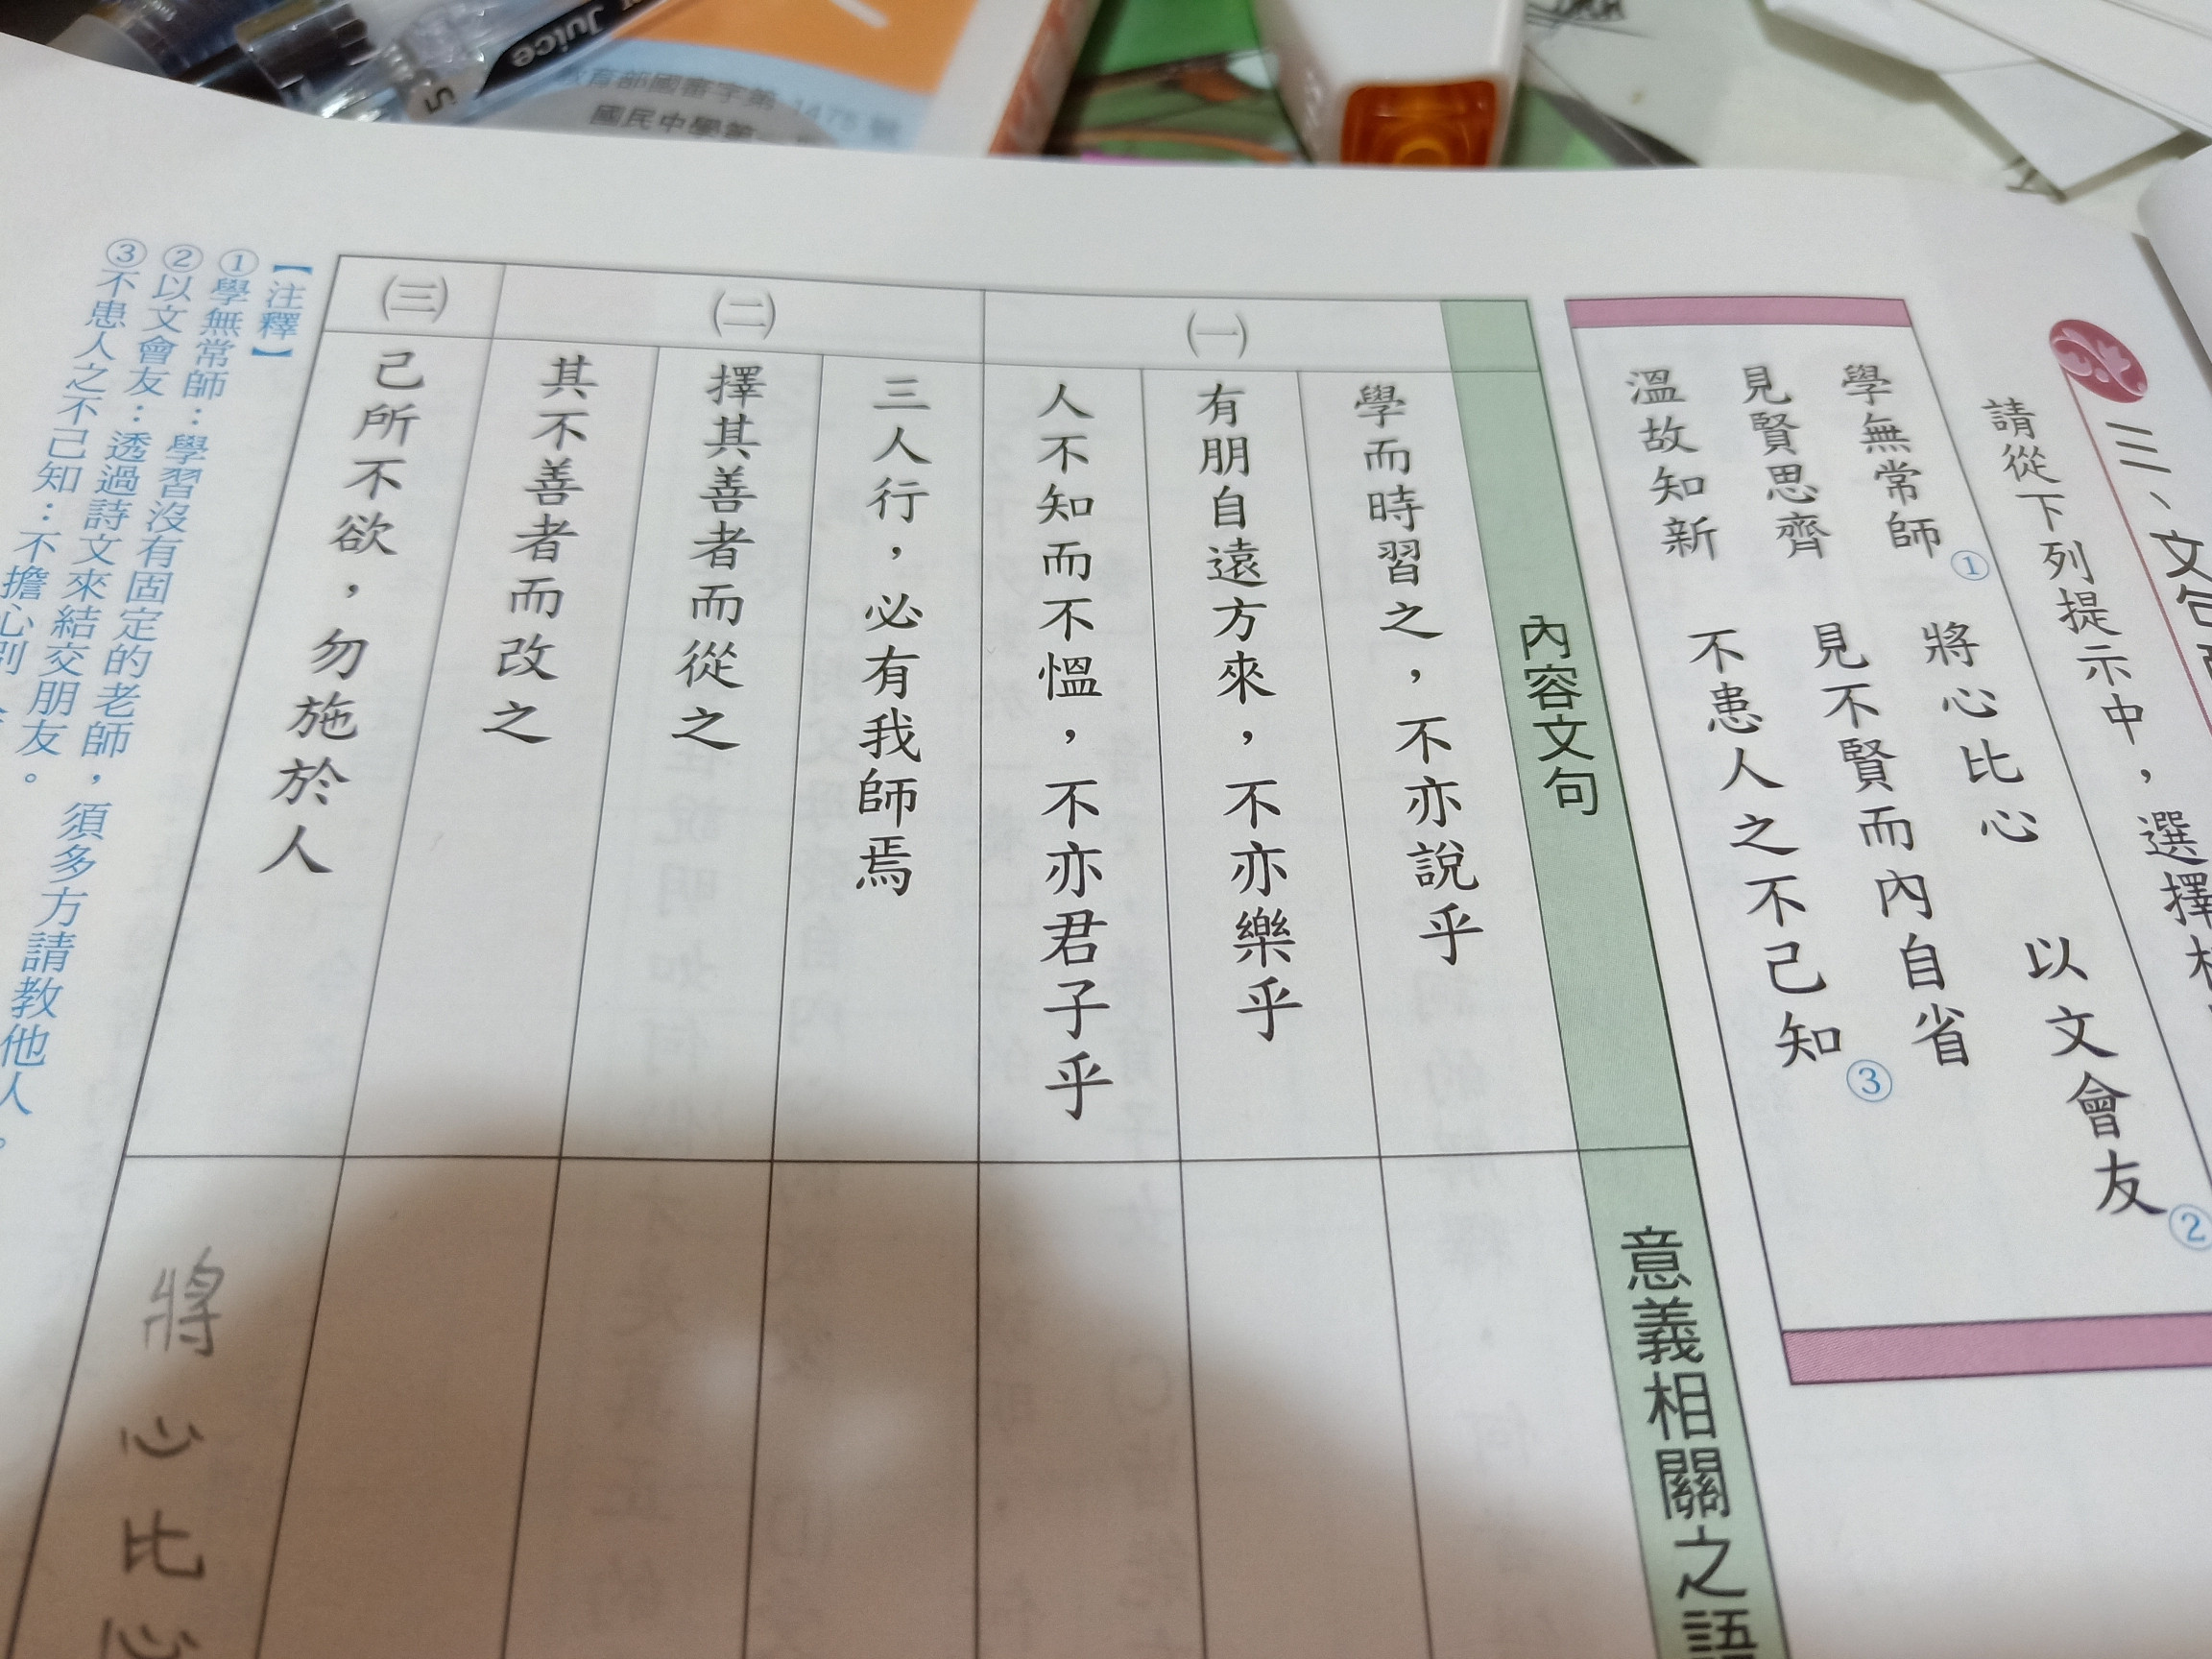 Juice
教育部國審字第 1475 號
國民中學
三、文句
請從下列提示中，選擇
學無常師① 將心比心 以文會友②
見賢思齊 見不賢而內自省
溫故知新 不患人之不己知③
內容文句 意義相關之語
㈠
學而時習之，不亦說乎
有朋自遠方來，不亦樂乎
人不知而不慍，不亦君子乎
㈡
三人行，必有我師焉
擇其善者而從之
其不善者而改之
㈢
己所不欲，勿施於人 將心比心
【注釋】
①學無常師：學習沒有固定的老師，須多方請教他人。
②以文會友：透過詩文來結交朋友。
③不患人之不己知：不擔心別